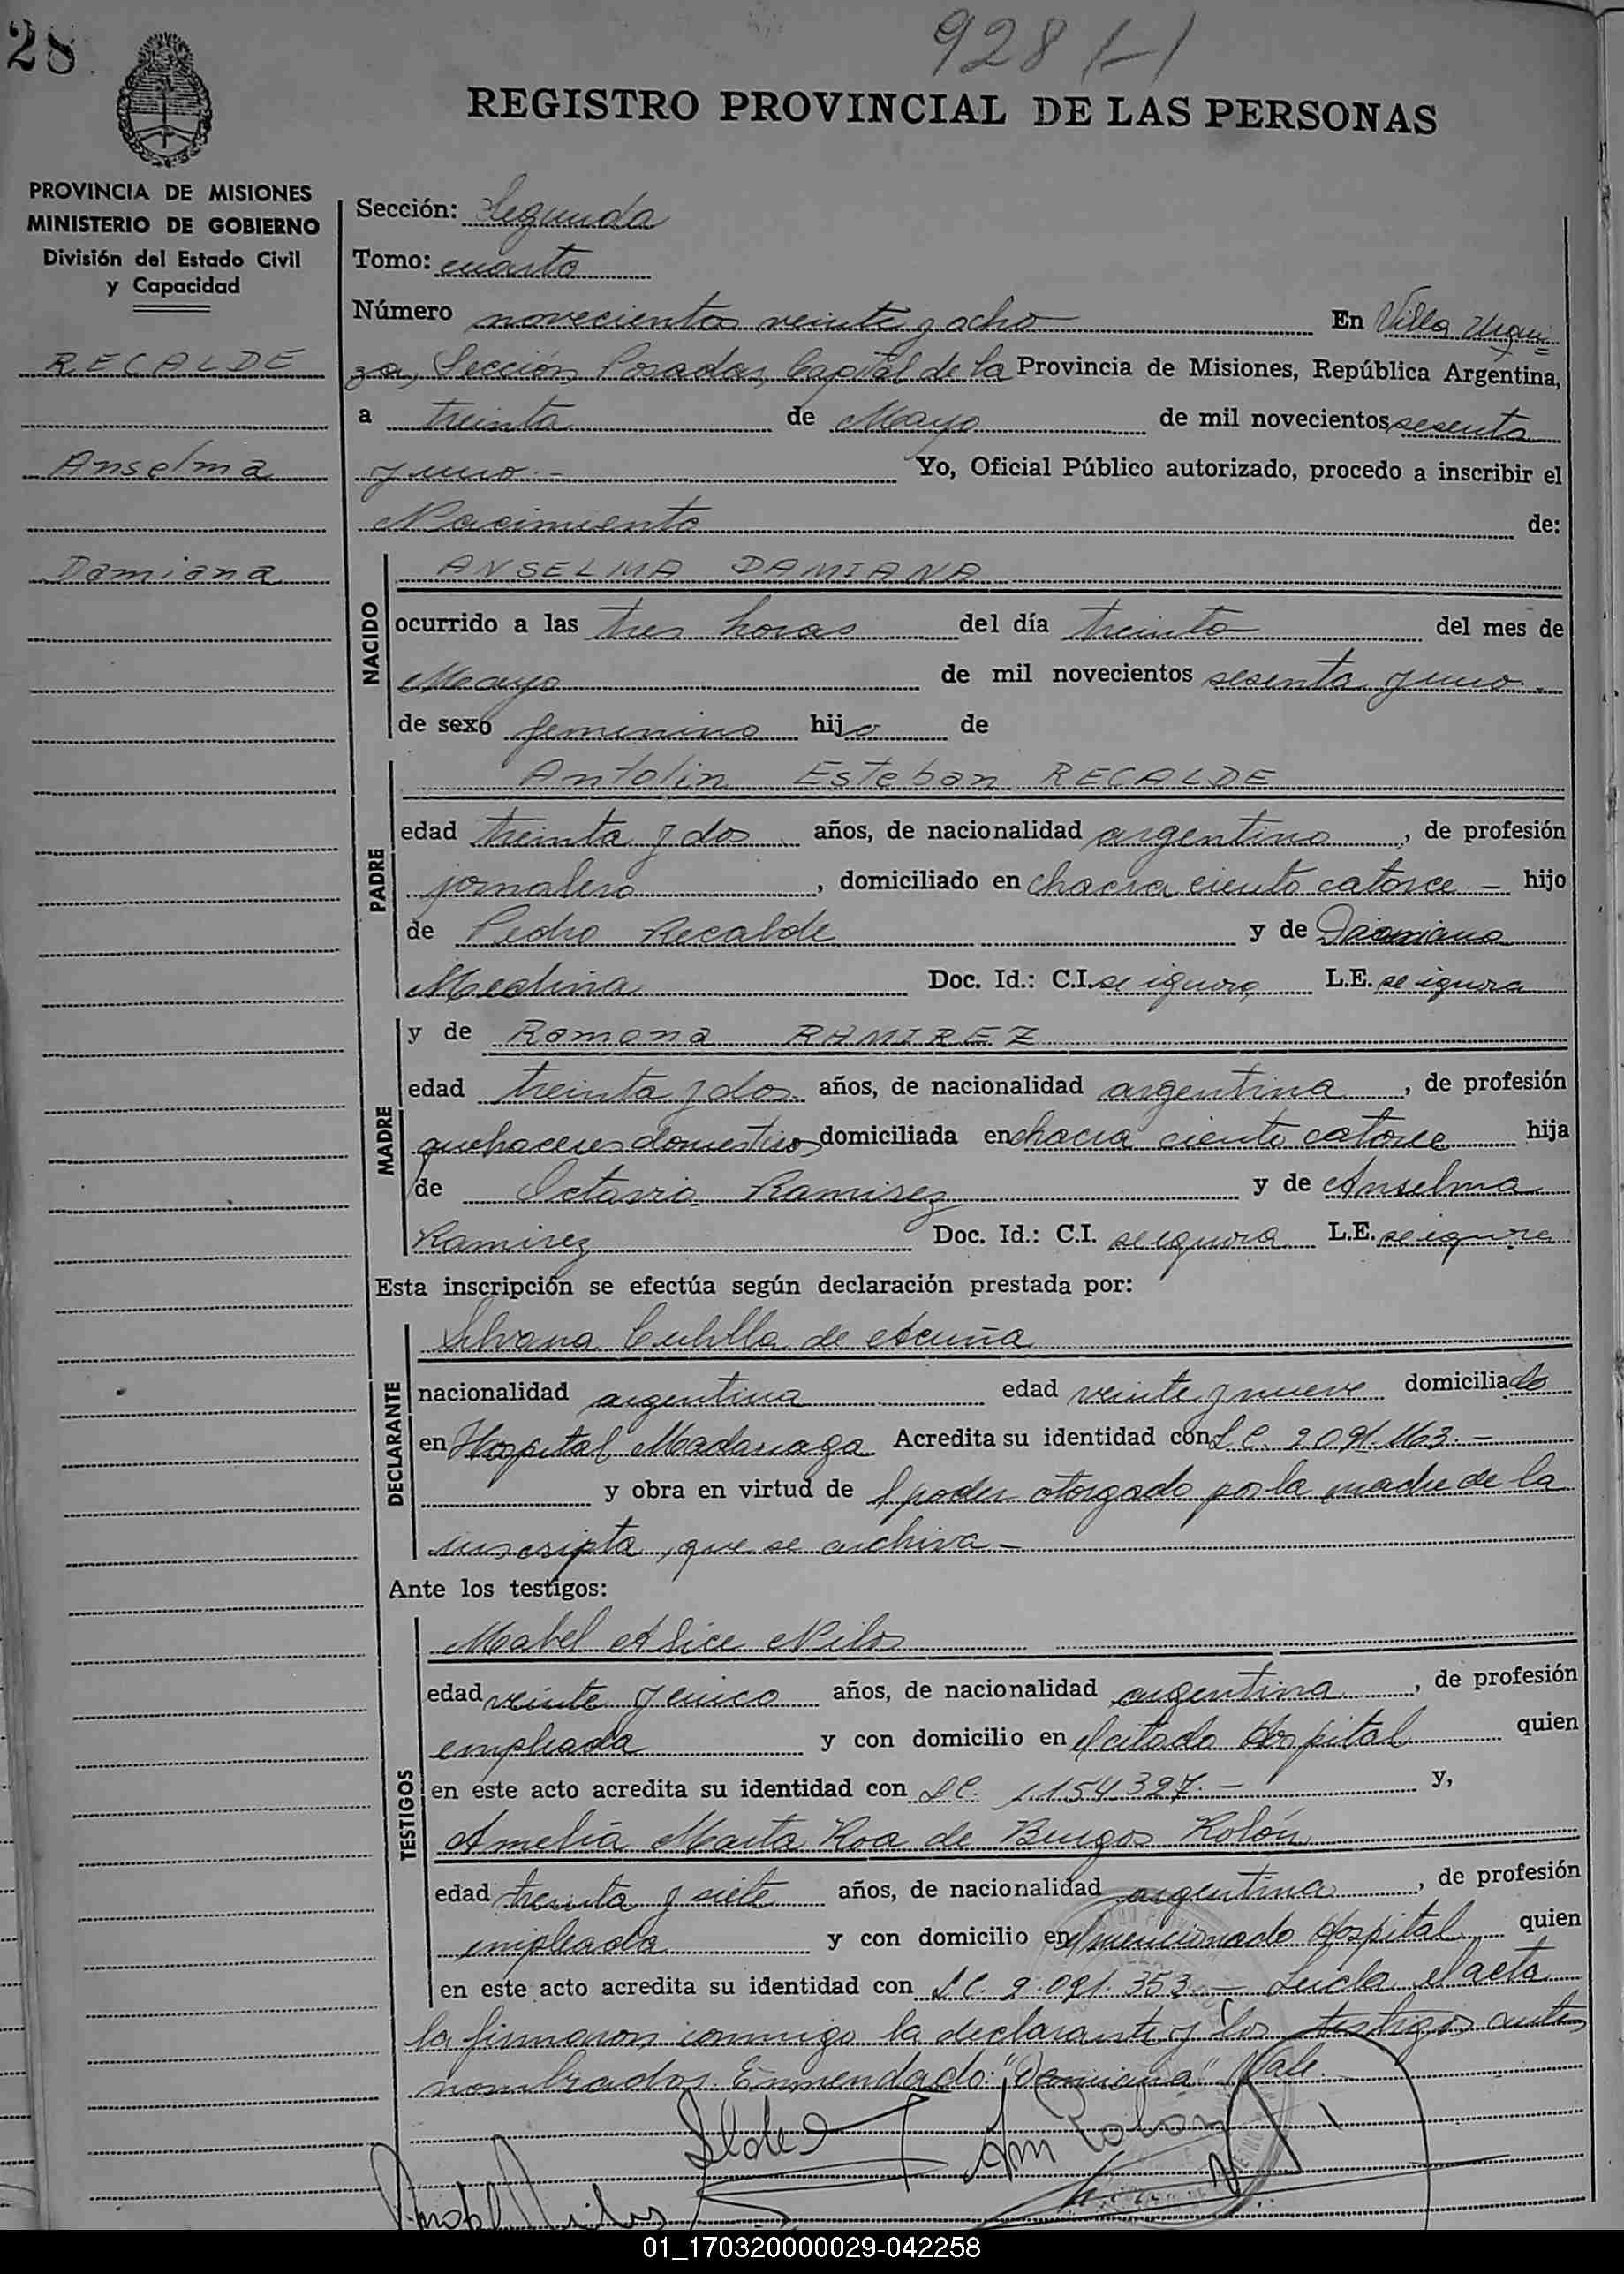 28
928 (-1
REGISTRO PROVINCIAL DE LAS PERSONAS
PROVINCIA DE MISIONES
MINISTERIO DE GOBIERNO
División del Estado Civil
y Capacidad
RECALDE
Anselma
Damiana
Sección: Segunda
Tomo: cuarto
Número novecientos veinte y ocho En Villa Urqui=
za, Sección Posadas, Capital de la Provincia de Misiones, República Argentina,
a treinta de Mayo de mil novecientos sesenta
y uno.- Yo, Oficial Público autorizado, procedo a inscribir el
Nacimiento de:
NACIDO
ANSELMA DAMIANA
ocurrido a las tres horas del día treinta del mes de
Mayo de mil novecientos sesenta y uno.-
de sexo femenino hija de
PADRE
Antolin Esteban RECALDE
edad treinta y dos años, de nacionalidad argentino, de profesión
jornalero, domiciliado en chacra ciento catorce - hijo
de Pedro Recalde y de Damiana
Medina Doc. Id.: C.I. se ignora L.E. se ignora
MADRE
y de Ramona RAMIREZ
edad treinta y dos años, de nacionalidad argentina, de profesión
quehaceres domesticos domiciliada en chacra ciento catorce hija
de Octavio Ramirez y de Anselma
Ramirez Doc. Id.: C.I. se ignora L.E. se ignora
Esta inscripción se efectúa según declaración prestada por:
DECLARANTE
Silvana de Acuña
nacionalidad argentina edad veinte y nueve domiciliado
en Hospital Madariaga Acredita su identidad con L.C. 2.091.163.-
y obra en virtud de el poder otorgado por la madre de la
inscripta, que se archiva.-
Ante los testigos:
TESTIGOS
Mabel Alice Nilos
edad veinte y cinco años, de nacionalidad argentina, de profesión
empleada y con domicilio en el citado Hospital quien
en este acto acredita su identidad con L.C. 1.154.327.- y,
Amelia Marta Roa de Burgos Rolón
edad treinta y siete años, de nacionalidad argentina, de profesión
empleada y con domicilio en el mencionado Hospital quien
en este acto acredita su identidad con L.C. 2.091.353.- Leida el acta
la firmaron conmigo la declarante y los testigos antes
nombrados. Enmendado: "Damiana" Vale.
01_170320000029-042258